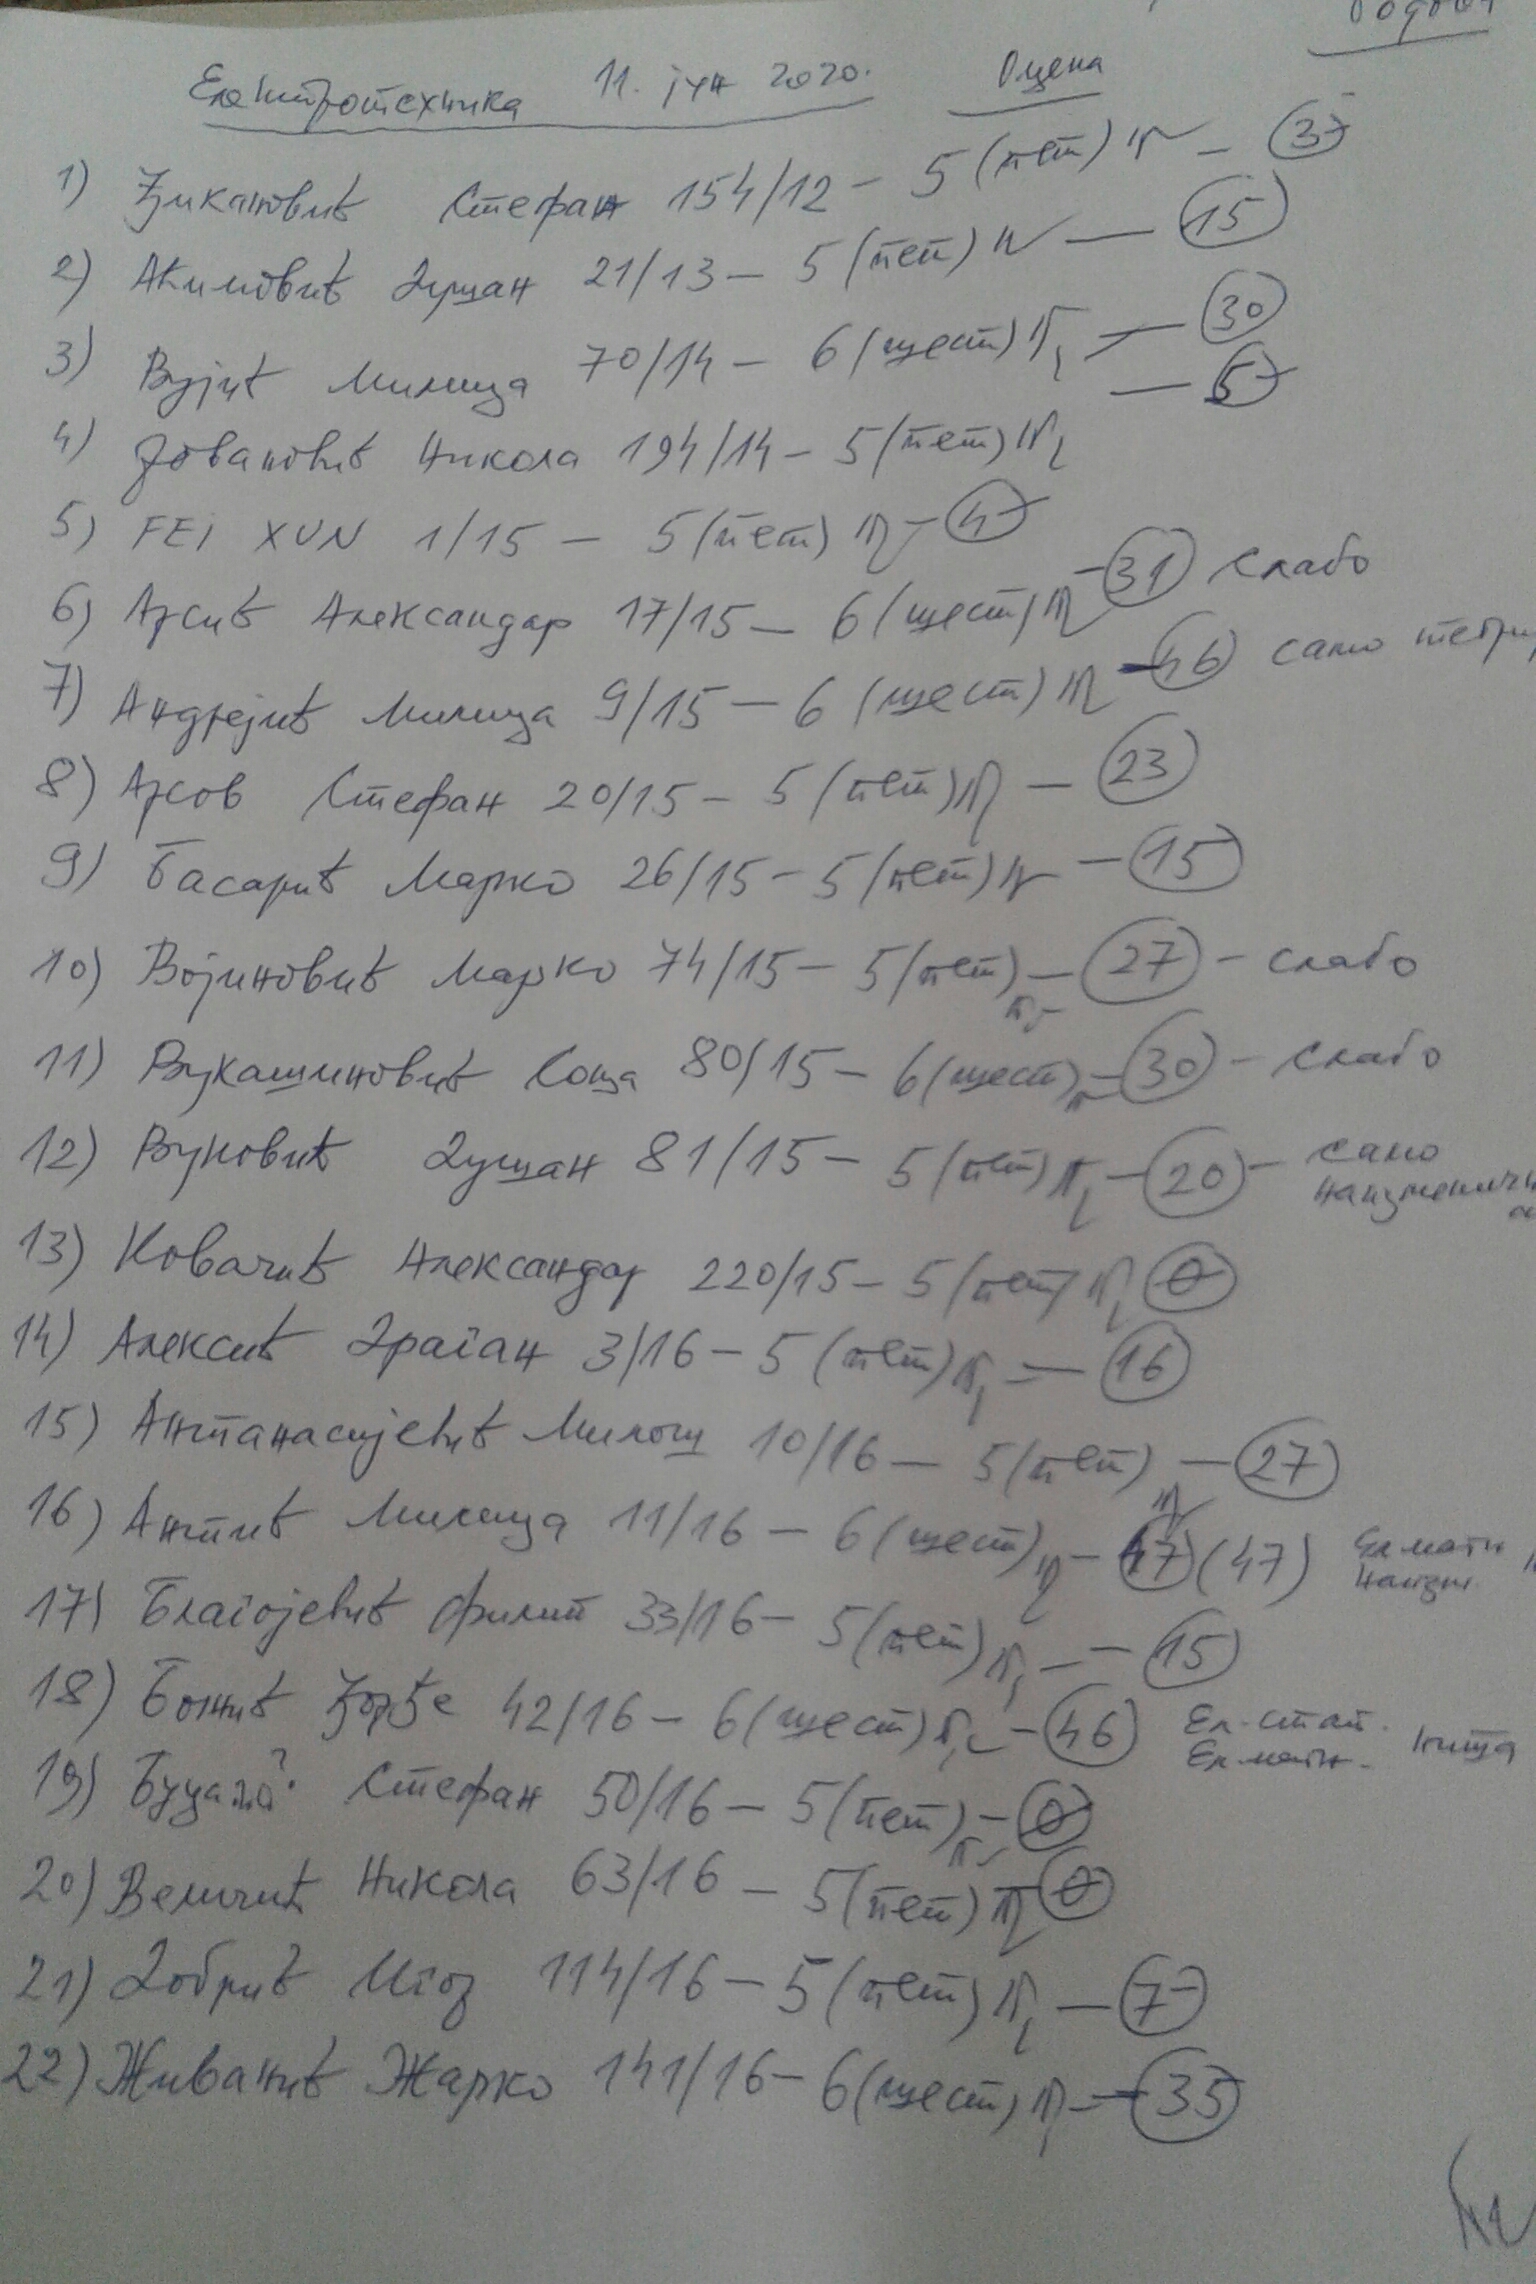 Електротехника 11. јун 2020. Оцена
1) Ђикановић Стефан 154/12 - 5 (пет) - 37
2) Акимовић Душан 21/13 - 5 (пет) - 15
3) Вујић Милица 70/14 - 6 (шест) - 30
4) Јовановић Никола 194/14 - 5 (пет) - 5
5) FEI XUN 1/15 - 5 (пет) - 4
6) Арсић Александар 17/15 - 6 (шест) - 31 слабо
7) Андрејић Милица 9/15 - 6 (шест) - 46 само
8) Арсов Стефан 20/15 - 5 (пет) - 23
9) Басарић Марко 26/15 - 5 (пет) - 15
10) Војиновић Марко 74/15 - 5 (пет) - 27 - слабо
11) Вукашиновић Соња 80/15 - 6 (шест) - 30 - слабо
12) Вуковић Душан 81/15 - 5 (пет) - 20 - само
13) Ковачић Александар 220/15 - 5 (пет) 0
14) Алексић Драган 3/16 - 5 (пет) - 16
15) Антанасијевић Милош 10/16 - 5 (пет) - 27
16) Антић Милица 11/16 - 6 (шест) - 47 (47) Ел магн
наизм.
17) Благојевић Филип 33/16 - 5 (пет) - 15
18) Божић Ђорђе 42/16 - 6 (шест) - 46 Ел. стат.
Ел. магн. ништа
19) Стефан 50/16 - 5 (пет) - 0
20) Величић Никола 63/16 - 5 (пет) 0
21) Добрић 114/16 - 5 (пет) - 7
22) Живанић Жарко 141/16 - 6 (шест) - 35